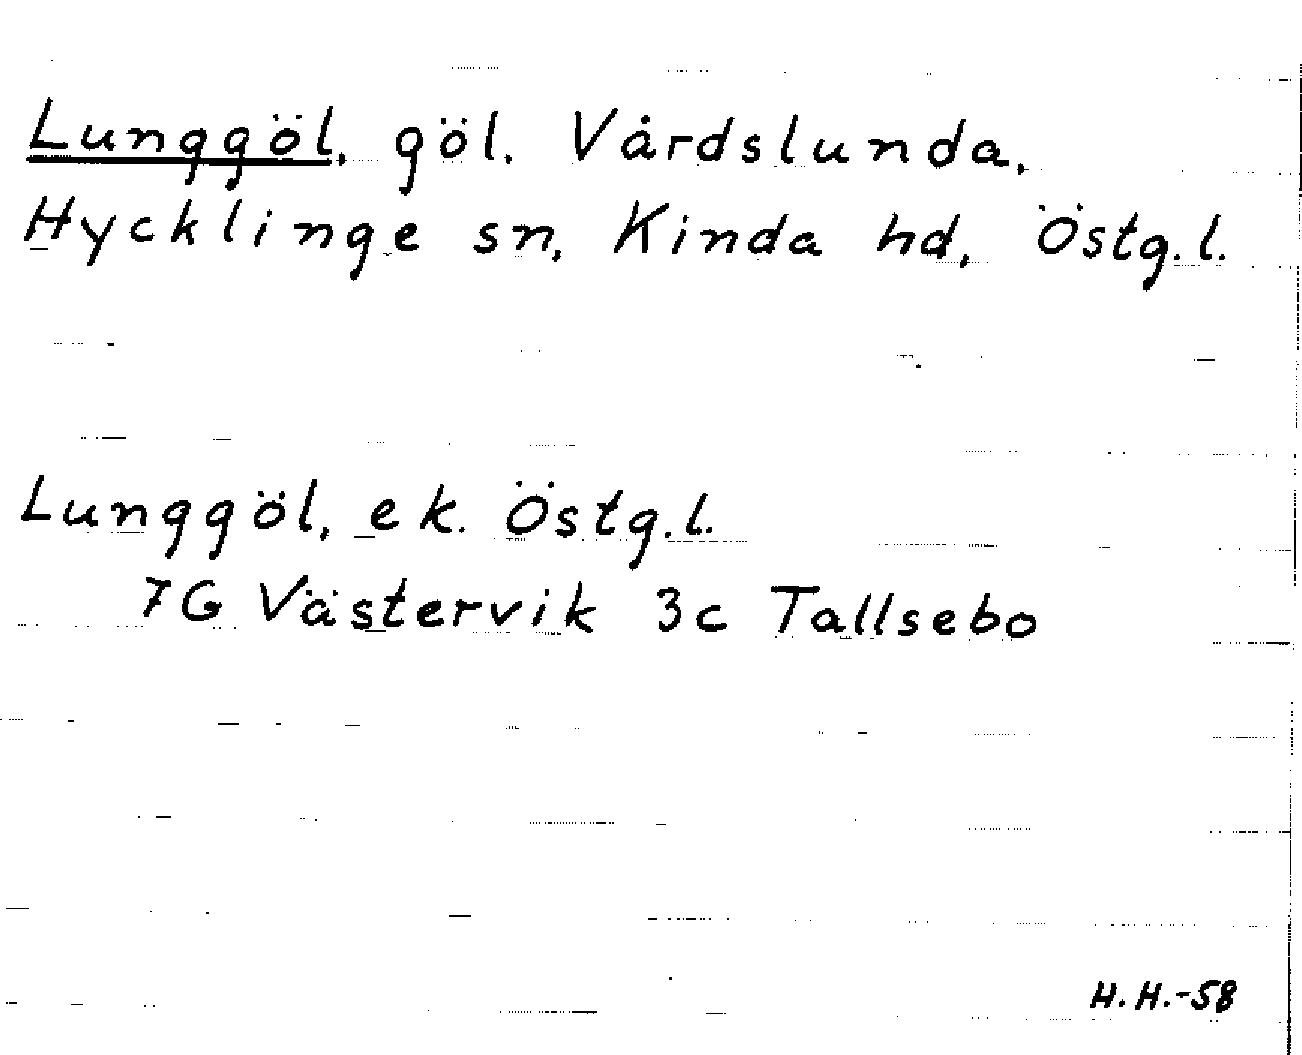 Lunggöl, göl. Vårdslunda,
Hycklinge sn, Kinda hd, Östg.l.
Lunggöl, ek. Östg.l.
7G Västervik 3c Tallsebo
H.H.-58